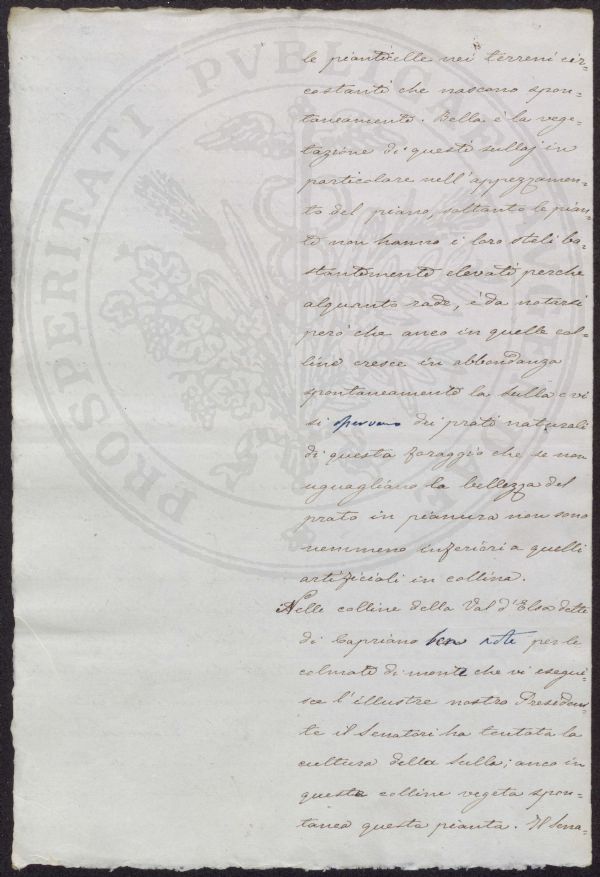 PROSPERITATI PVBLICAE AVGENDAE
le pianticelle nei terreni cir=
costanti che nascono spon=
taneamente. Bella è la vege=
tazione di questi sullaj in
particolare nell'appezzamen=
to del piano, soltanto le pian=
te non hanno i loro steli ba=
stantemente elevati perche
alquanto rade, è da notarsi
però che anco in quelle col=
line cresce in abbondanza
spontaneamente la sulla e vi
si osservano dei prati naturali
di questo foraggio che se non
uguagliano la bellezza del
prato in pianura non sono
nemmeno inferiori a quelli
artificiali in collina.
Nelle colline della Val d'Elsa dette
di Capriano ben note per le
colmate di monte che vi esegui=
sce l'illustre nostro Presiden=
te il Senatori ha tentata la
cultura della sulla; anco in
queste colline vegeta spon=
tanea questa pianta. Il Sena=